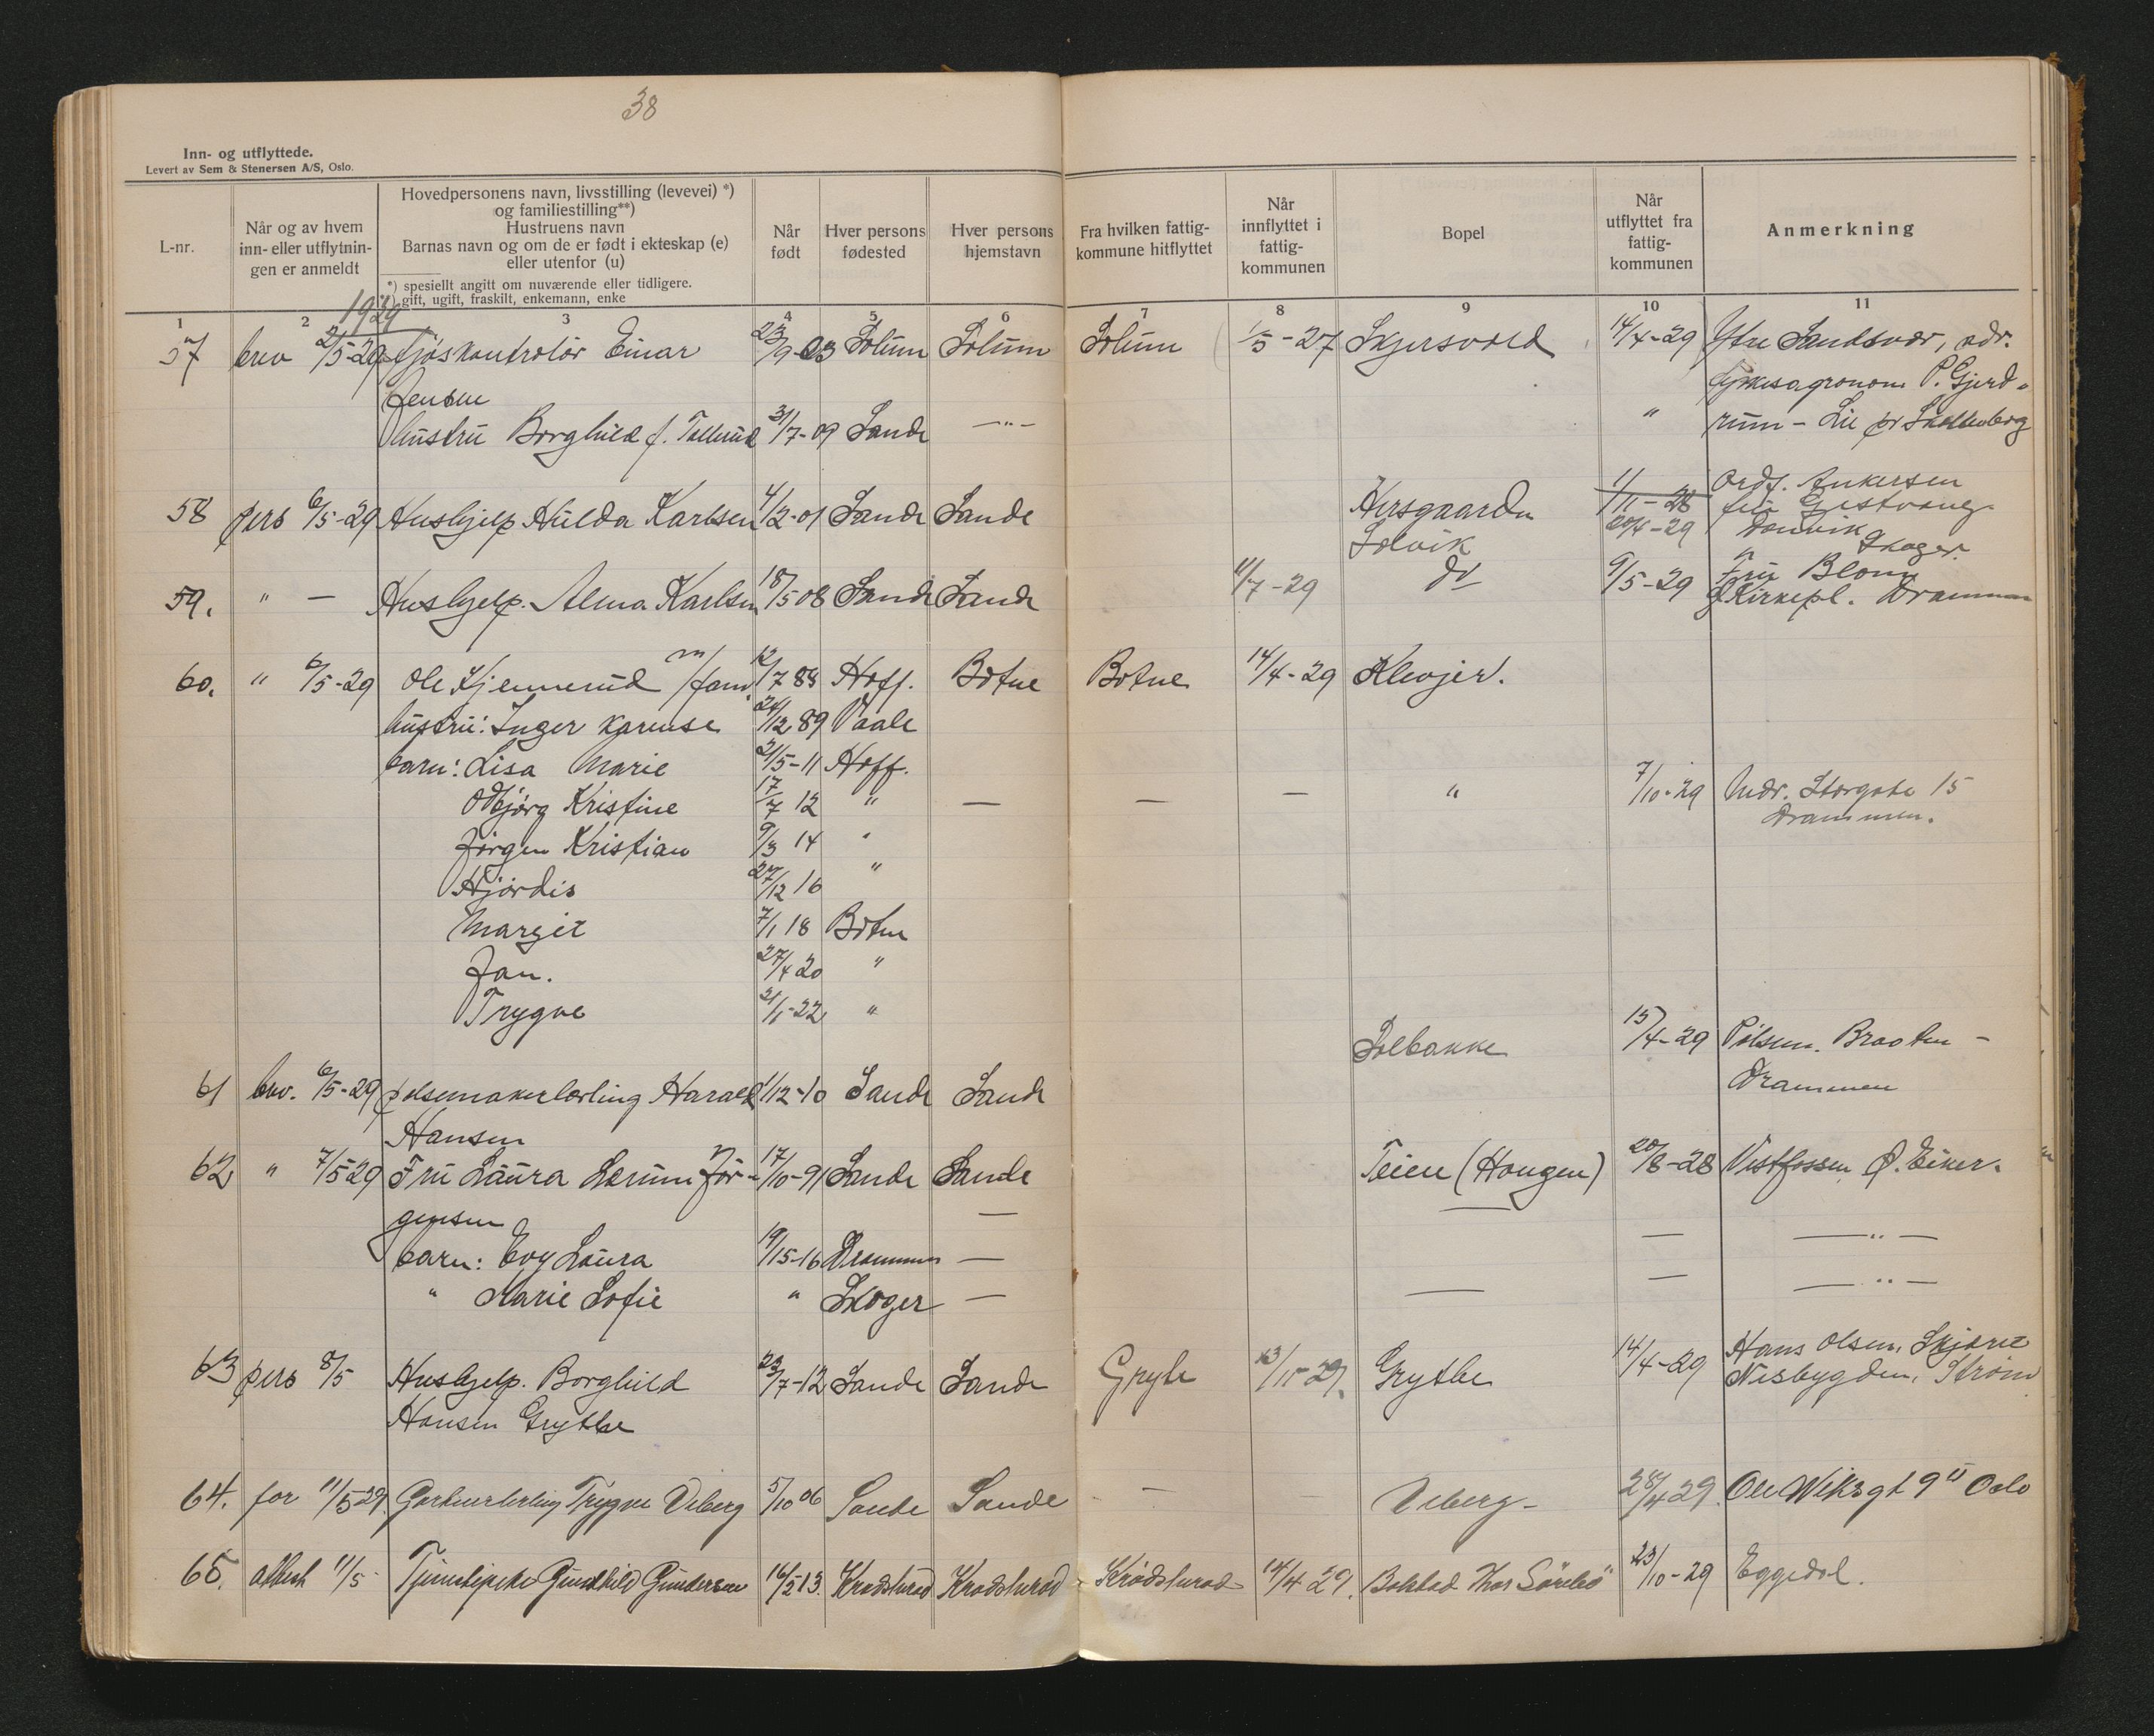 38
Inn- og utflyttede.
Levert av Sem & Stenersen A/S, Oslo.
L-nr.
Når og av hvem
inn- eller utflytnin-
gen er anmeldt
Hovedpersonens navn, livsstilling (levevei) *)
og familiestilling**)
Hustruens navn
Barnas navn og om de er født i ekteskap (e)
eller utenfor (u)
*) spesiellt angitt om nuværende eller tidligere.
**) gift, ugift, fraskilt, enkemann, enke
Når
født
Hver persons
fødested
Hver persons
hjemstavn
Fra hvilken fattig-
kommune hitflyttet
Når
innflyttet i
fattig-
kommunen
Bopel
Når
utflyttet fra
fattig-
kommunen
Anmerkning
1 2 3 4 5 6 7 8 9 10 11
1929
57 brev 2/5-29 fjøskontrolør Einar 23/9-03 Solum Solum Solum 1/5-27 Skjersvold 14/4-29 Ytre Sandsvær, adr.
Jensen fylkesagronom P. Gjerd-
hustru Borghild f. Tollerud 31/7-09 Sande —"— " rum - Lie pr Skollenborg
58 pers 6/5-29 Hushjelp Hulda Karlsen 4/2-01 Sande Sande Hersgaarden 1/11-28 Ordf. Ankersen
Solvik 20/4-29 Skoger.
59. " — Hushjelp. Alma Karlsen 18/5 08 Sande Sande 11/7-29 do 9/5-29 Fru Blom
Kirkepl. Drammen
60. " 6/5-29 Ole Kjennerud m/fam. 12/7 88 Hoff. Botne Botne 14/4-29 Klevjer.
hustru: Inger Karense 24/12 89 Vaale
barn: Lisa Marie 21/5-11 Hoff.
Odbjørg Kristine 17/7 12 " — — — " 7/10-29 Nedr. Storgate 15
Drammen.
Jørgen Kristian 9/3 14 "
Hjørdis 27/12 16 "
Margit 7/1 18 Botne
Jan. 27/4 20 "
Trygve 21/1-22 "
61 brev. 6/5-29 pølsemakerlærling Harald 1/12-10 Sande Sande Solbakke 15/4-29 Pølsem. Braaten -
Hansen Drammen
62 " 7/5 29 Fru Laura Lerum Jør- 17/10-91 Sande Sande Teien (Haugen) 20/8-28 Vestfossen, Ø. Eiker.
gensen —
barn: Evy Laura 19/15-16 Drammen — — — —"—
" Marie Sofie " Skoger — — — —"—
63 pers 8/5 Hushjelp. Borghild 23/7-12 Sande Sande Gryte 23/11-29. Grytbe 14/4-29 Hans Olsen, Skjøret
Hansen Grytbe Nesbygden, Strøm
64. for 11/5 29. Gartnerlærling Trygve Viberg 5/10 06 Sande Sande — Viberg- 28/4 29. Ole Wiksgt 9 II Oslo
65. attest 11/5- Tjenestepike Gundhild Gundersen 16/5 13. Krødsherad Krødsherad Krødsherad 14/4 29. Bakstad Thor Sørebø 23/10-29 Eggedal.